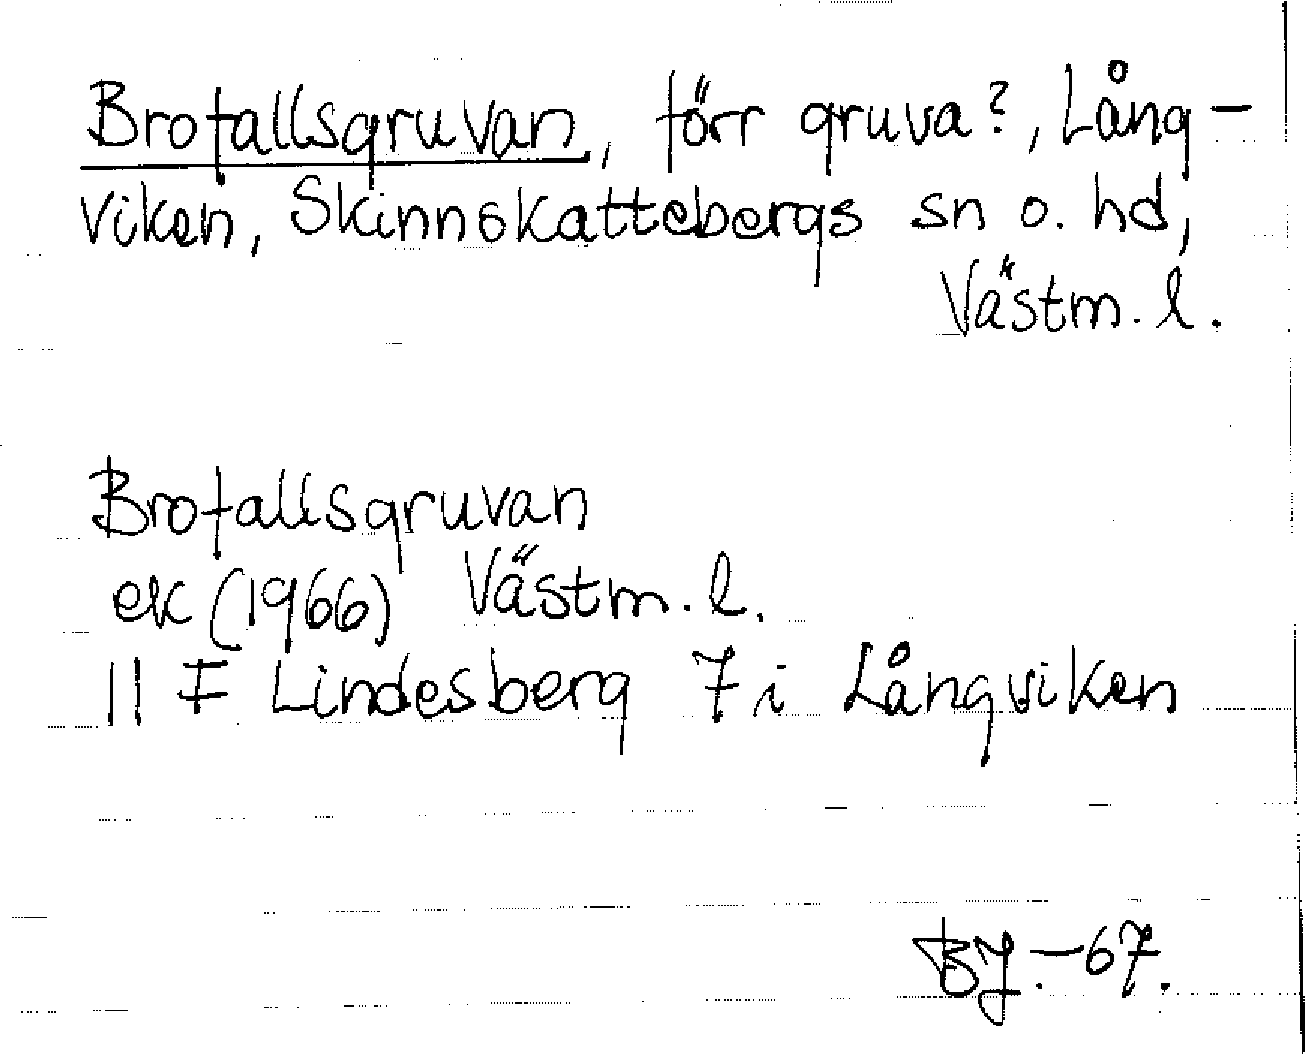 Brofallsgruvan, förr gruva?, Lång-
viken, Skinnskattebergs sn o. hd,
Västm. l.
Brofallsgruvan
ek (1966) Västm. l.
11 F Lindesberg 7 i Långviken
BJ. -67.